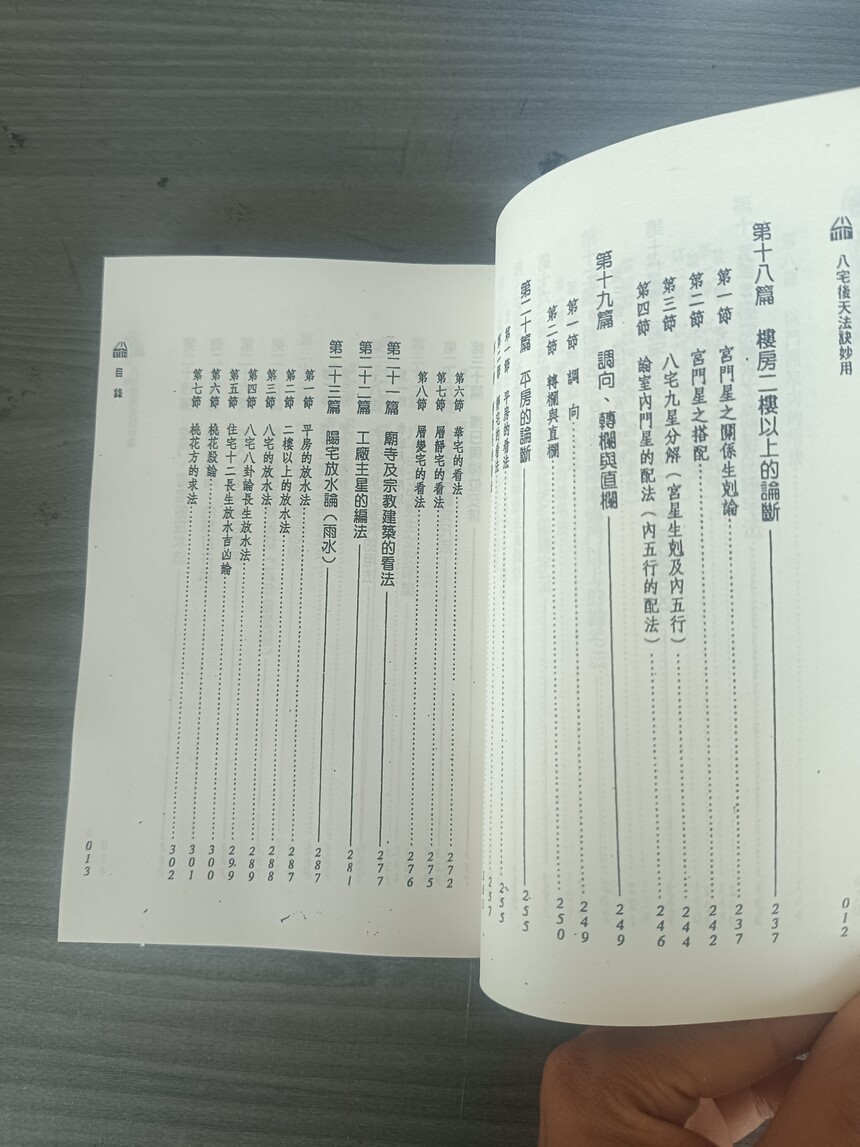 八宅後天法訣妙用
第十八篇 樓房二樓以上的論斷 237
第一節 宮門星之關係生剋論 237
第二節 宮門星之搭配 242
第三節 八宅九星分解（宮星生剋及內五行） 244
第四節 論室內門星的配法（內五行的配法） 246
第十九篇 調向、轉欄與直欄 249
第一節 調 向 249
第二節 轉欄與直欄 250
第二十篇 平房的論斷 255
第一節 平房的看法 255
012
第六節 華宅的看法 272
第七節 層靜宅的看法 275
第八節 層變宅的看法 276
第二十一篇 廟寺及宗教建築的看法 277
第二十二篇 工廠主星的編法 281
第二十三篇 陽宅放水論（雨水） 287
第一節 平房的放水法 287
第二節 二樓以上的放水法 287
第三節 八宅的放水法 288
第四節 八宅八卦論長生放水法 289
第五節 住宅十二長生放水吉凶論 299
第六節 桃花殺論 300
第七節 桃花方的求法 301
302
目錄
013